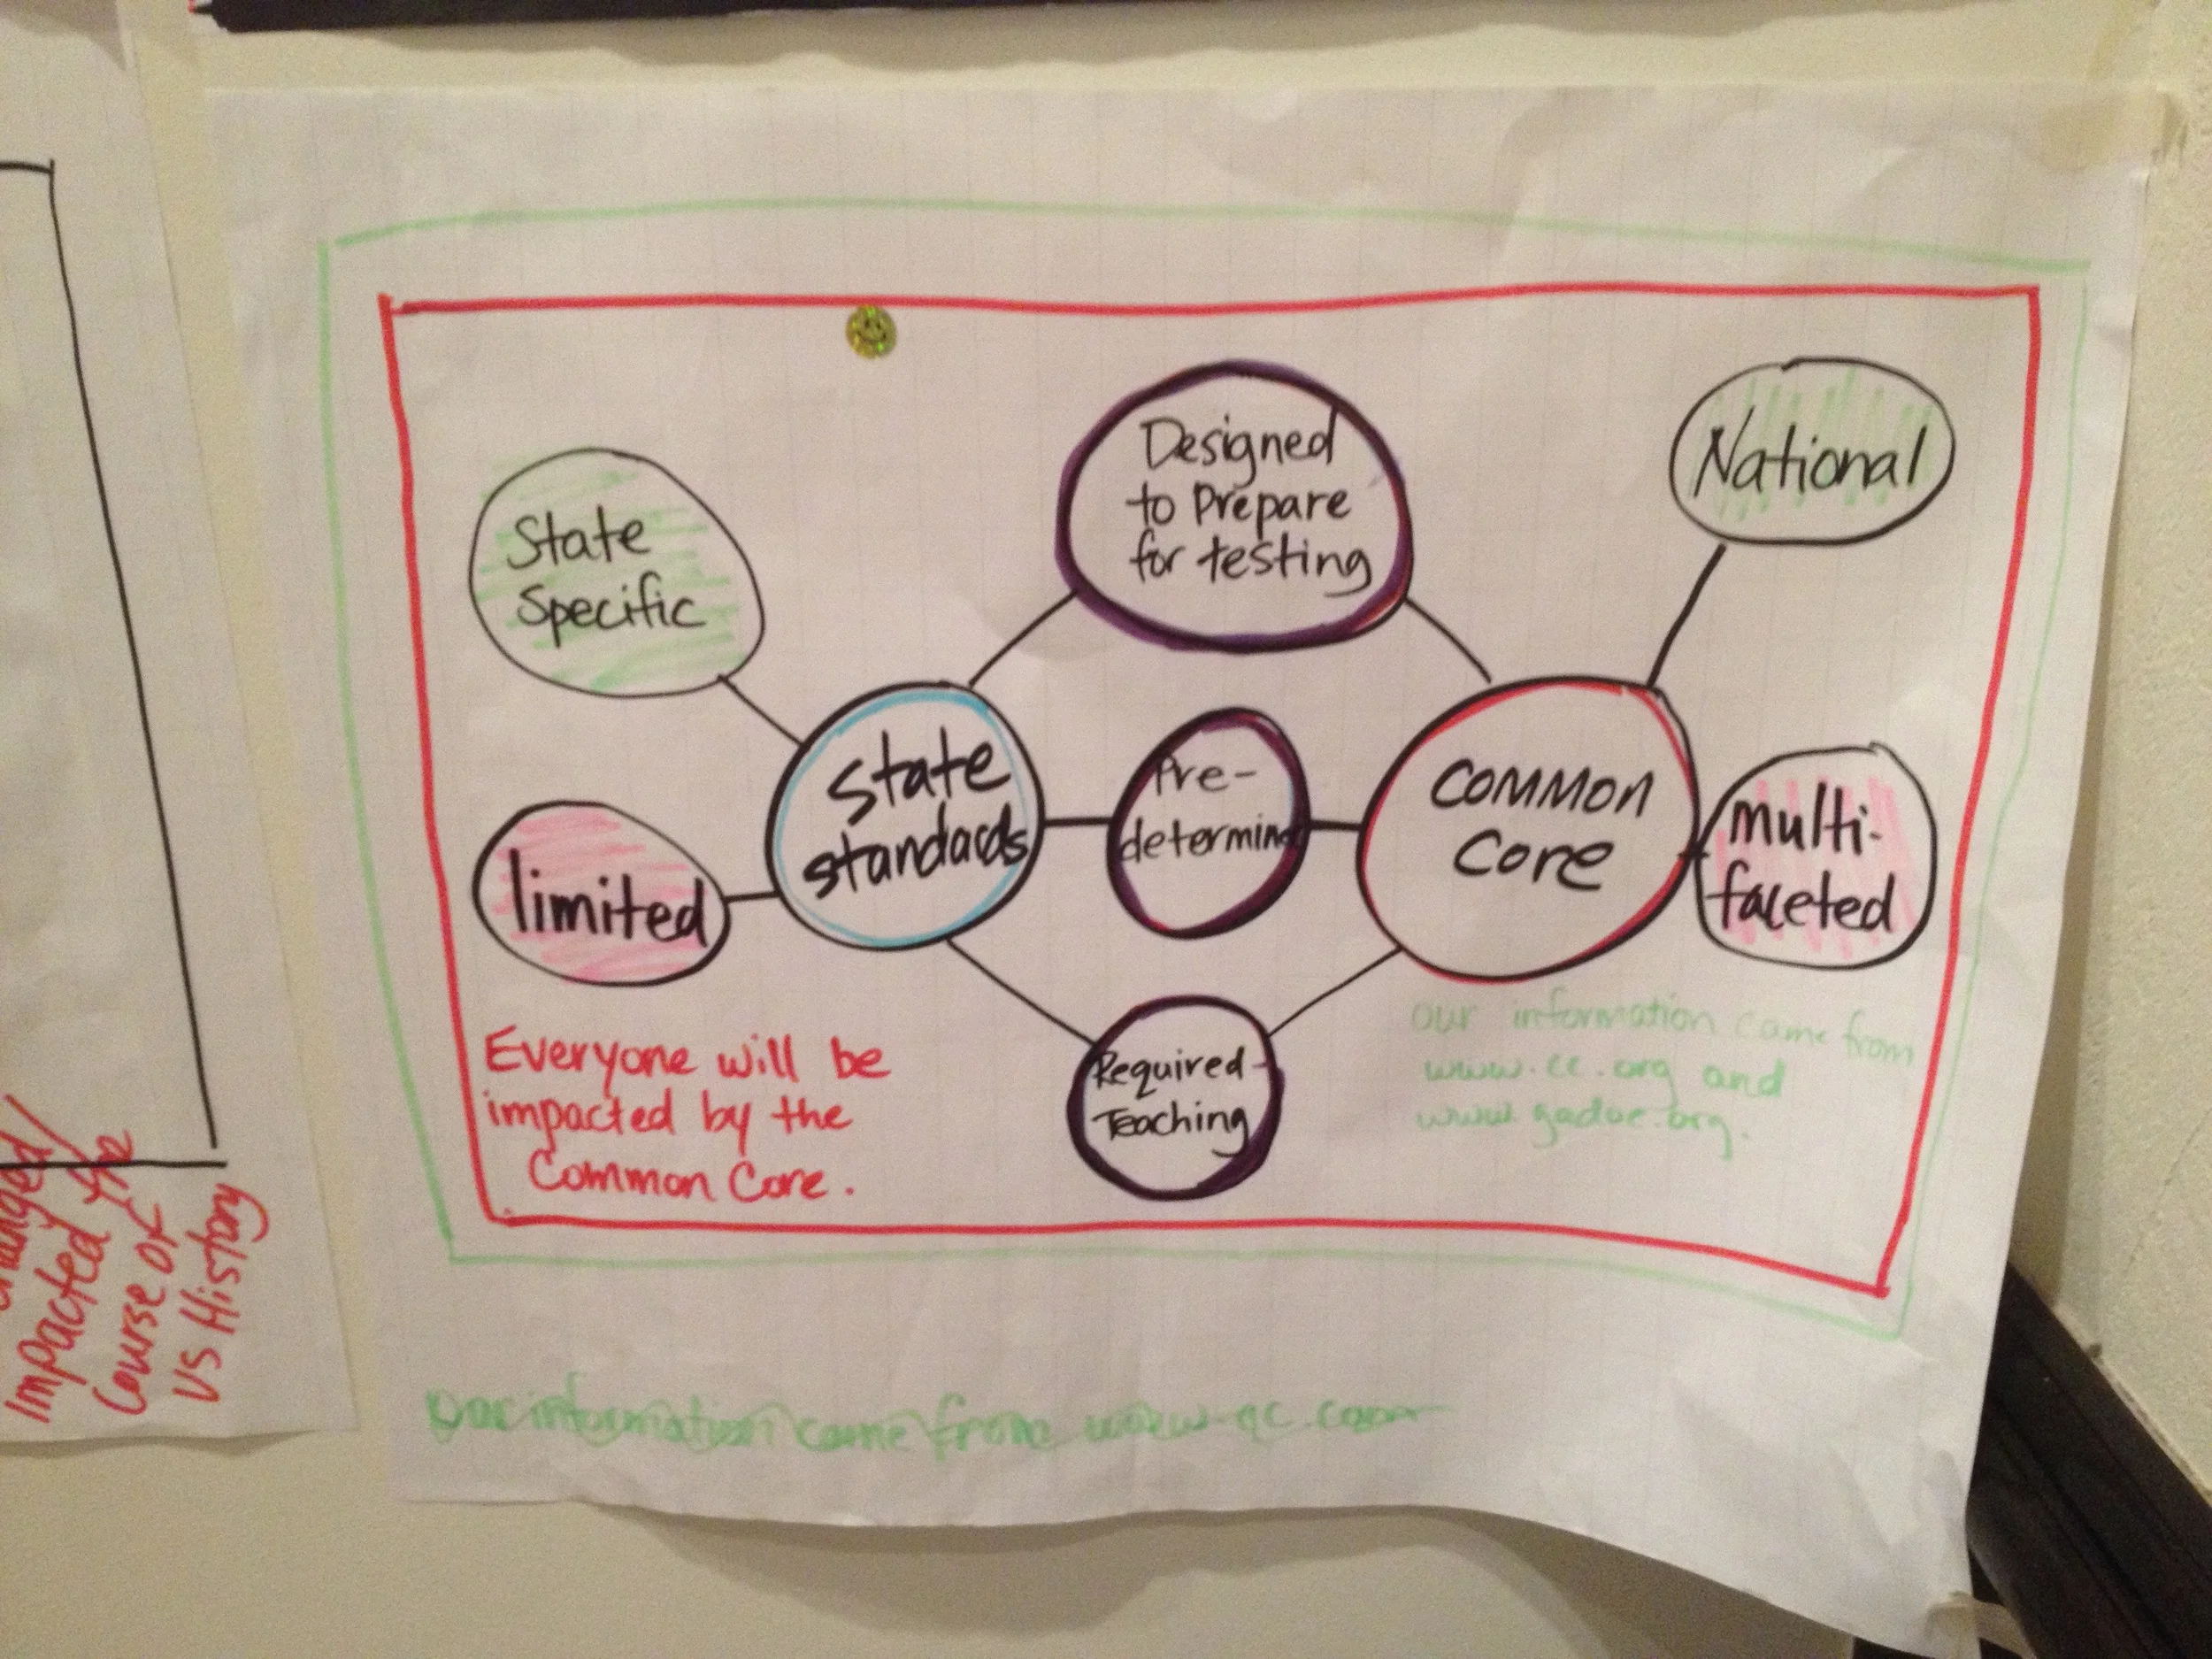 Designed
to Prepare
for testing
National
State
Specific
State
standards
Pre-
determine
COMMON
Core
multi-
faceted
limited
Required
Teaching
Everyone will be
impacted by the
Common Core.
our information came from
www.cc.org and
www.gadoe.org.
Our information came from www.
Impacted the
Course of
US History